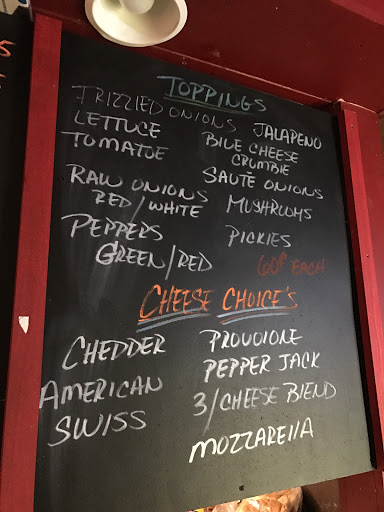 TOPPINGS
FRIZZIED ONIONS
LETTUCE
TOMATOE
RAW ONIONS
RED/WHITE
PEPPERS
GREEN/RED
JALAPENO
BLUE CHEESE
CRUMBLE
SAUTE ONIONS
MUSHROOMS
PICKIES
60¢ EACH
CHEESE CHOICE'S
CHEDDER
AMERICAN
SWISS
PROVOLONE
PEPPER JACK
3/CHEESE BLEND
MOZZARELLA